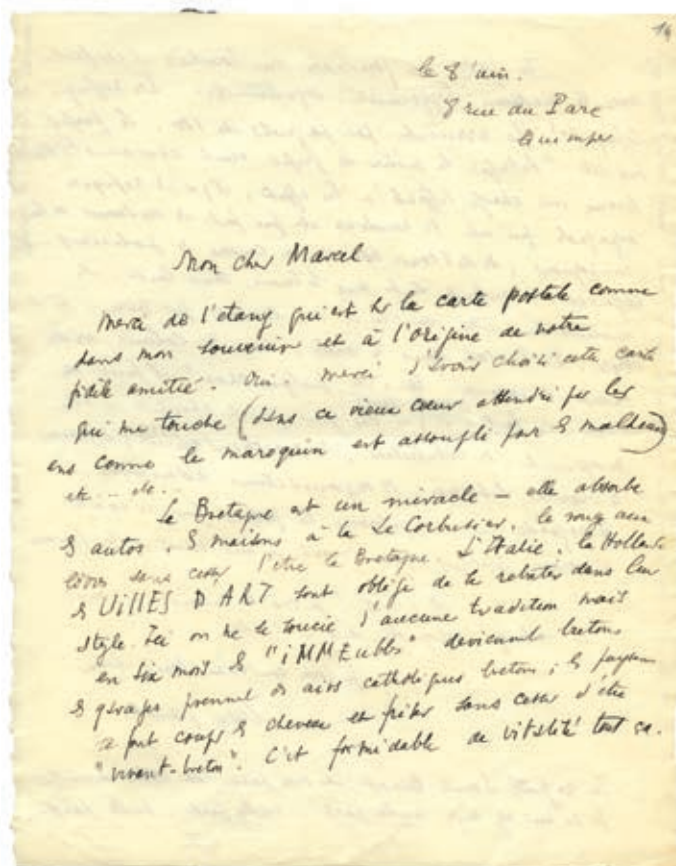 14
le 8 juin.
8 rue du Parc
Quimper
Mon cher Marcel
Merci de l'étang qui est sur la carte postale comme
dans mon souvenir et à l'origine de notre
fidèle amitié. Oui. merci d'avoir choisi cette carte
qui me touche (dans ce vieux cœur attendri par les
ans comme le maroquin est assoupli par
etc... etc.
La Bretagne est un miracle – elle absorbe
les autos. les maisons à la Le Corbusier. le rouge aux
lèvres sans cesser d'être la Bretagne. L'Italie. la Hollande
les VILLES D'ART sont obligé de se rebâter dans leur
style. Ici on ne se soucie d'aucune tradition mais
en six mois les "iMMEubles" deviennent bretons
les garages prennent des airs catholiques bretons ; les
a fait couper les cheveux et friser sans cesser d'être
"vivant-breton". C'est formidable de vitalité tout ça.